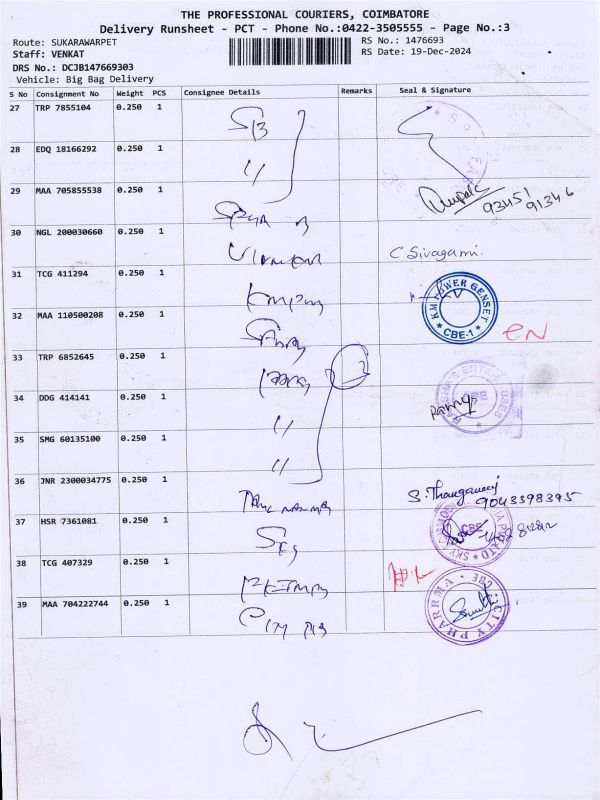 THE PROFESSIONAL COURIERS, COIMBATORE
Delivery Runsheet - PCT - Phone No.:0422-3505555 - Page No.:3
Route: SUKARAWARPET
RS No.: 1476693
Staff: VENKAT
RS Date: 19-Dec-2024
DRS No.: DCJB147669303
Vehicle: Big Bag Delivery
S No Consignment No Weight PCS Consignee Details Remarks Seal & Signature
27 TRP 7855104 0.250 1
28 EDQ 18166292 0.250 1 "
29 MAA 705855538 0.250 1
93451 91346
30 NGL 200030660 0.250 1 C Sivagami.
31 TCG 411294 0.250 1
K M POWER GENSET
CBE-1
32 MAA 110500208 0.250 1
33 TRP 6852645 0.250 1 2
34 DDG 414141 0.250 1 "
CBE
35 SMG 60135100 0.250 1 "
36 JNR 2300034775 0.250 1 S. Thangamani
9043398395
37 HSR 7361081 0.250 1
CBE
38 TCG 407329 0.250 1
39 MAA 704222744 0.250 1
CITY PHARRMA * CBE *